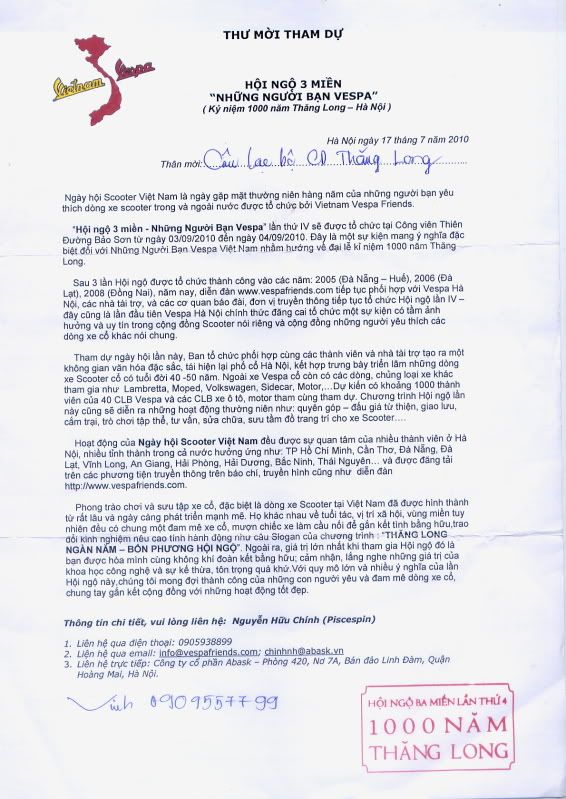 THƯ MỜI THAM DỰ
Vietnam Vespa
HỘI NGỘ 3 MIỀN
“NHỮNG NGƯỜI BẠN VESPA”
( Kỷ niệm 1000 năm Thăng Long – Hà Nội )
Hà Nội ngày 17 tháng 7 năm 2010
Thân mời: Câu lạc bộ CD Thăng Long
Ngày hội Scooter Việt Nam là ngày gặp mặt thường niên hàng năm của những người bạn yêu
thích dòng xe scooter trong và ngoài nước được tổ chức bởi Vietnam Vespa Friends.
“Hội ngộ 3 miền - Những Người Bạn Vespa” lần thứ IV sẽ được tổ chức tại Công viên Thiên
Đường Bảo Sơn từ ngày 03/09/2010 đến ngày 04/09/2010. Đây là một sự kiện mang ý nghĩa đặc
biệt đối với Những Người Bạn Vespa Việt Nam nhằm hướng về đại lễ kỉ niệm 1000 năm Thăng
Long.
Sau 3 lần Hội ngộ được tổ chức thành công vào các năm: 2005 (Đà Nẵng – Huế), 2006 (Đà
Lạt), 2008 (Đồng Nai), năm nay, diễn đàn www.vespafriends.com tiếp tục phối hợp với Vespa Hà
Nội, các nhà tài trợ, và các cơ quan báo đài, đơn vị truyền thông tiếp tục tổ chức Hội ngộ lần IV –
đây cũng là lần đầu tiên Vespa Hà Nội chính thức đăng cai tổ chức một sự kiện có tầm ảnh
hưởng và uy tín trong cộng đồng Scooter nói riêng và cộng đồng những người yêu thích các
dòng xe cổ khác nói chung.
Tham dự ngày hội lần này, Ban tổ chức phối hợp cùng các thành viên và nhà tài trợ tạo ra một
không gian văn hóa đặc sắc, tái hiện lại phố cổ Hà Nội, kết hợp trưng bày triển lãm những dòng
xe Scooter Cổ có tuổi đời 40 -50 năm. Ngoài xe Vespa cổ còn có các dòng, chủng loại xe khác
tham gia như Lambretta, Moped, Volkswagon, Sidecar, Motor,...Dự kiến có khoảng 1000 thành
viên của 40 CLB Vespa và các CLB xe ô tô, motor tham cùng tham dự. Chương trình Hội ngộ lần
này cũng sẽ diễn ra những hoạt động thường niên như: quyên góp – đấu giá từ thiện, giao lưu,
cắm trại, trò chơi tập thể, tư vấn, sửa chữa, sưu tầm đồ trang trí cho xe Scooter....
Hoạt động của Ngày hội Scooter Việt Nam đều được sự quan tâm của nhiều thành viên ở Hà
Nội, nhiều tỉnh thành trong cả nước hưởng ứng như: TP Hồ Chí Minh, Cần Thơ, Đà Nẵng, Đà
Lạt, Vĩnh Long, An Giang, Hải Phòng, Hải Dương, Bắc Ninh, Thái Nguyên... và được đăng tải
trên các phương tiện truyền thông trên báo chí, truyền hình cũng như diễn đàn
http://www.vespafriends.com.
Phong trào chơi và sưu tập xe cổ, đặc biệt là dòng xe Scooter tại Việt Nam đã được hình thành
từ rất lâu và ngày càng phát triển mạnh mẽ. Họ khác nhau về tuổi tác, vị trí xã hội, vùng miền tuy
nhiên đều có chung một đam mê xe cổ, mượn chiếc xe làm cầu nối để gắn kết tình bằng hữu,trao
dổi kinh nghiệm nêu cao tinh hành động như câu Slogan của chương trình : “THĂNG LONG
NGÀN NĂM – BỐN PHƯƠNG HỘI NGỘ”. Ngoài ra, giá trị lớn nhất khi tham gia Hội ngộ đó là
bạn được hòa mình cùng không khí đoàn kết bằng hữu; cảm nhận, lắng nghe những giá trị của
khoa học công nghệ và sự kế thừa, tôn trọng quá khứ.Với quy mô lớn và nhiều ý nghĩa của lần
Hội ngộ này,chúng tôi mong đợi thành công của những con người yêu và đam mê dòng xe cổ,
chung tay gắn kết cộng đồng với những hoạt động tốt đẹp.
Thông tin chi tiết, vui lòng liên hệ: Nguyễn Hữu Chính (Piscespin)
1. Liên hệ qua điện thoại: 0905938899
2. Liên hệ qua email: info@vespafriends.com; chinhnh@abask.vn
3. Liên hệ trực tiếp: Công ty cổ phần Abask – Phòng 420, Nơ 7A, Bán đảo Linh Đàm, Quận
Hoàng Mai, Hà Nội.
Vinh 0909557799
HỘI NGỘ BA MIỀN LẦN THỨ 4
1000 NĂM
THĂNG LONG